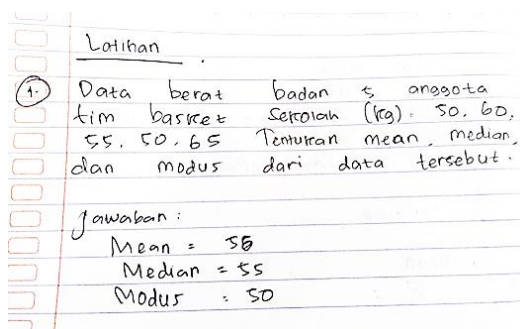 Latihan
1. Data berat badan 5 anggota
tim basket sekolah (kg). 50. 60,
55. 50. 65 Tentukan mean. median,
dan modus dari data tersebut.
Jawaban :
Mean = 56
Median = 55
Modus : 50